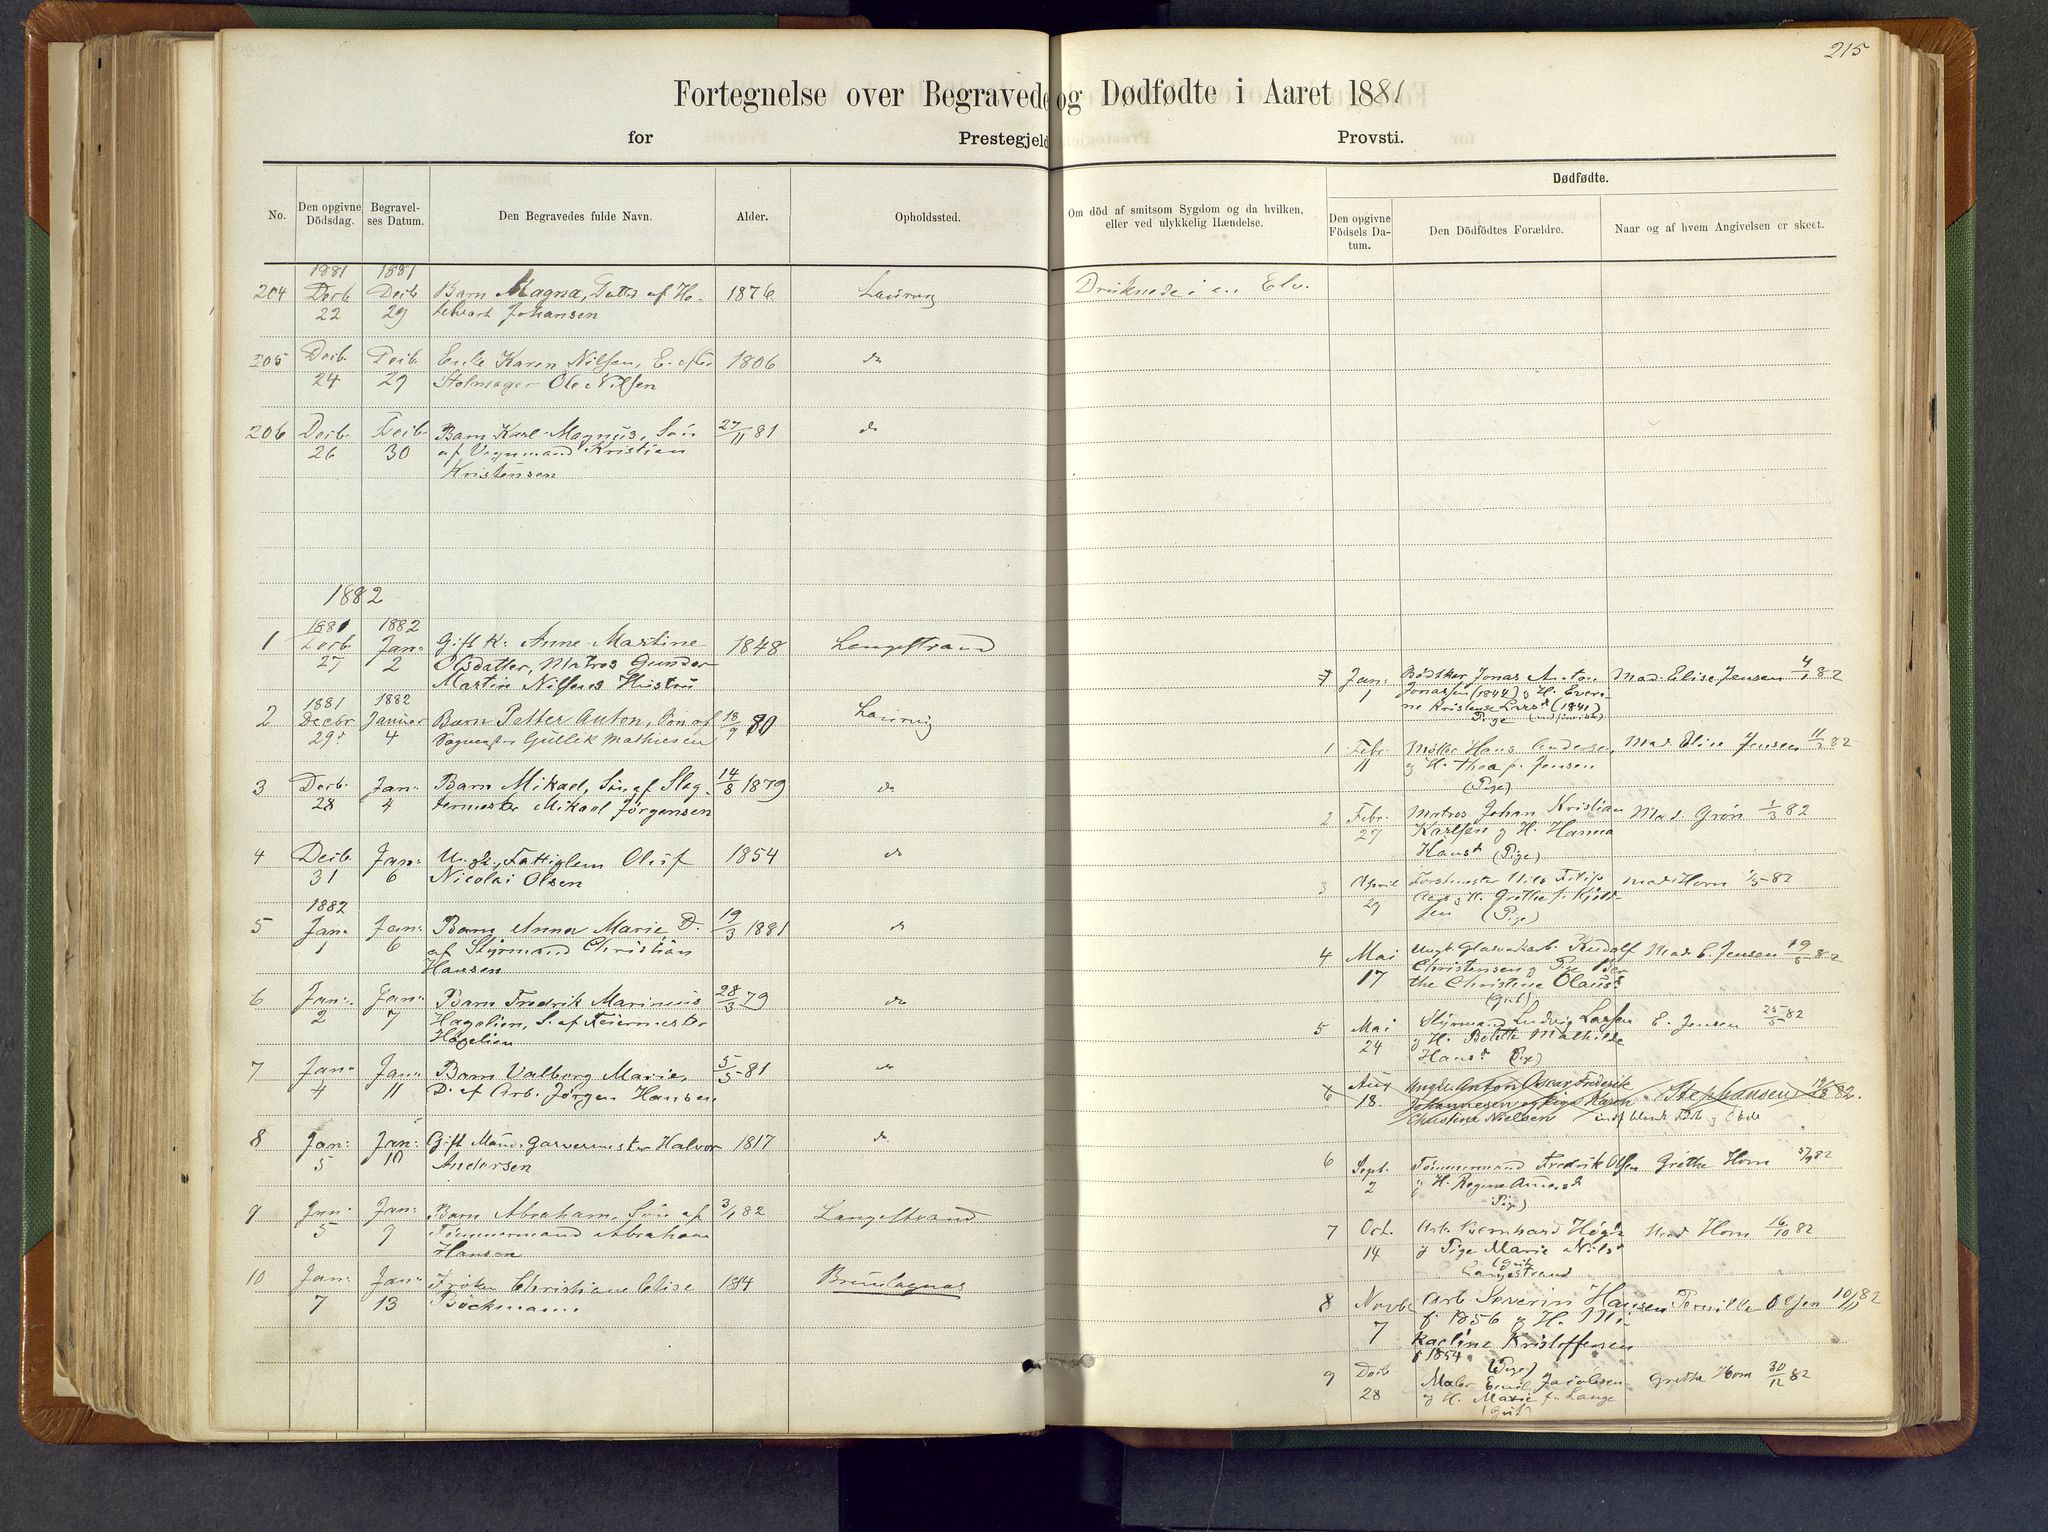 215
Fortegnelse over Begravede og Dødfødte i Aaret 1881
for Prestegjeld Provsti.
No.
Den opgivne Dödsdag.
Begravelses Datum.
Den Begravedes fulde Navn.
Alder.
Opholdssted.
Om död af smitsom Sygdom og da hvilken, eller ved ulykkelig Hændelse.
Dødfødte.
Den opgivne Födsels Datum.
Den Dödfödtes Forældre.
Naar og af hvem Angivelsen er skeet.
1881 1881
204 Decb. Decb. Barn Magna, Datter af H- 1876 Laurvig Druknede i en Elv.
22 29 Johansen
205 Decb. Decb. Enke Karen Nilsen, E. efter 1806 do
24 29 Stolmager Ole Nilsen
206 Decb. Decb. Barn Karl Magnus, Sön 27/11 81 do
26 30 af Vognmand Kristian
Kristensen
1882
1881 1882
1 Decb. Jan: Gift K: Anne Martine 1848 Langestrand
27 2 Olsdatter, Matros Gunder
Martin Nilsens Hustru
1881 1882
2 Decbr Januar Barn Petter Anton, Søn af 80 Laurvig
29 4 Gullik Mathiesen
3 Decb. Jan: Barn Mikael, Sön af Slag- 14/8 1879 do
28 4 termester Mikael Jørgensen
4 Decb. Jan: Ungk. Fattiglem Oluf 1854 do
31 6 Nicolai Olsen
1882
5 Jan: Jan: Barn Anna Marie D. 19/3 1881 do
1 6 af Styrmand Christian
Hansen
6 Jan: Jan: Barn Fredrik Marinius 28/3 79 do
2 7 Hagelien, S. af Feiermester
Hagelien
7 Jan: Jan: Barn Valborg Marie, 5/5 81 do
4 11 D. af Arb. Jörgen Hansen
8 Jan: Jan: Gift Mand, Garvermester Halvor 1817 do
5 10 Andersen
9 Jan: Jan: Barn Abraham, Sön af 3/1 82 Langestrand
5 9 Tömmermand Abraham
Hansen
10 Jan: Jan: Frøken Christiane Elise 1814 Brunlagnes
7 13 Böckmann
Jan: Bødtker Jonas Anton Mad. Elise Jensen 4/1 82
1 Jonassen (1844) og H. Everi-
ne Kristense Larsd (1841)
Pige
1 Febr Hans Andersen Mad. Elise Jensen 11/2 82
11 og H. Thea f. Jensen
(Pige)
2 Febr. Matros Johan Kristian Mad. Grön 1/3 82
27 Karlsen og H. Hanna
Hansd (Pige)
3 April Forstmester Nils Filip Mad Horn 1/5 82
29 og H. Grethe f. Kjeld-
sen (Pige)
4 Mai Ungk. Glasværkarb. Rudolf Mad E. Jensen 19/5 82
17 Christensen og Pige Ber-
the Christine Olausd
(Gut)
5 Mai Styrmand Ludvig Larsen E. Jensen 25/5 82
24 og H. Bolette Mathilde
Hansd (Pige)
6 Aug Ungk. Anton Oscar Frederik Stephansen 82.
18 Johannesen og Pige Karen
Christine Nielsen indf blandt Födte og Døde
6 Sept. Tömmermand Fredrik Olsen Grethe Horn 82
2 og H. Regine Andersd
(Pige)
7 Oct. Arb. Bernhard Mad Horn 16/10 82
14 og Pige Marie Nilsd
(Gut)
Langestrand
8 Novb. Arb Severin Hansen Pernille Olsen 10/11 82
7 f. 1856 og H. Mi-
kaeline Kristoffersen
f 1854. (Pige)
9 Decb Maler Emil Jacobsen Grethe Horn 30/12 82
28 og H. Marie f. Lange
(Gut)